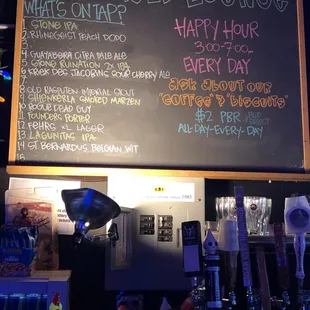 WHAT'S ON TAP?
1 STONE IPA
2 RHINEGEIST PEACH DODO
3
4 GUAYABERA CITRA PALE ALE
5 STONE RUINATION 2x IPA
6 KRIEK DES JACOBINS SOUR CHERRY ALE
7
8 OLD RASPUTEN IMPERIAL STOUT
9 SHLENKERLA SMOKED MARZEN
10 ROGUE DEAD GUY
11 FOUNDERS PORTER
12 FEHRS XL LAGER
13 LAGUNITAS IPA
14 ST. BERNARDUS BELGIAN WIT
15
LOUNGE
HAPPY HOUR
3:00-7:00
EVERY DAY
ask about our
"coffee" & "biscuits"
$2 PBR
ALL-DAY-EVERY-DAY